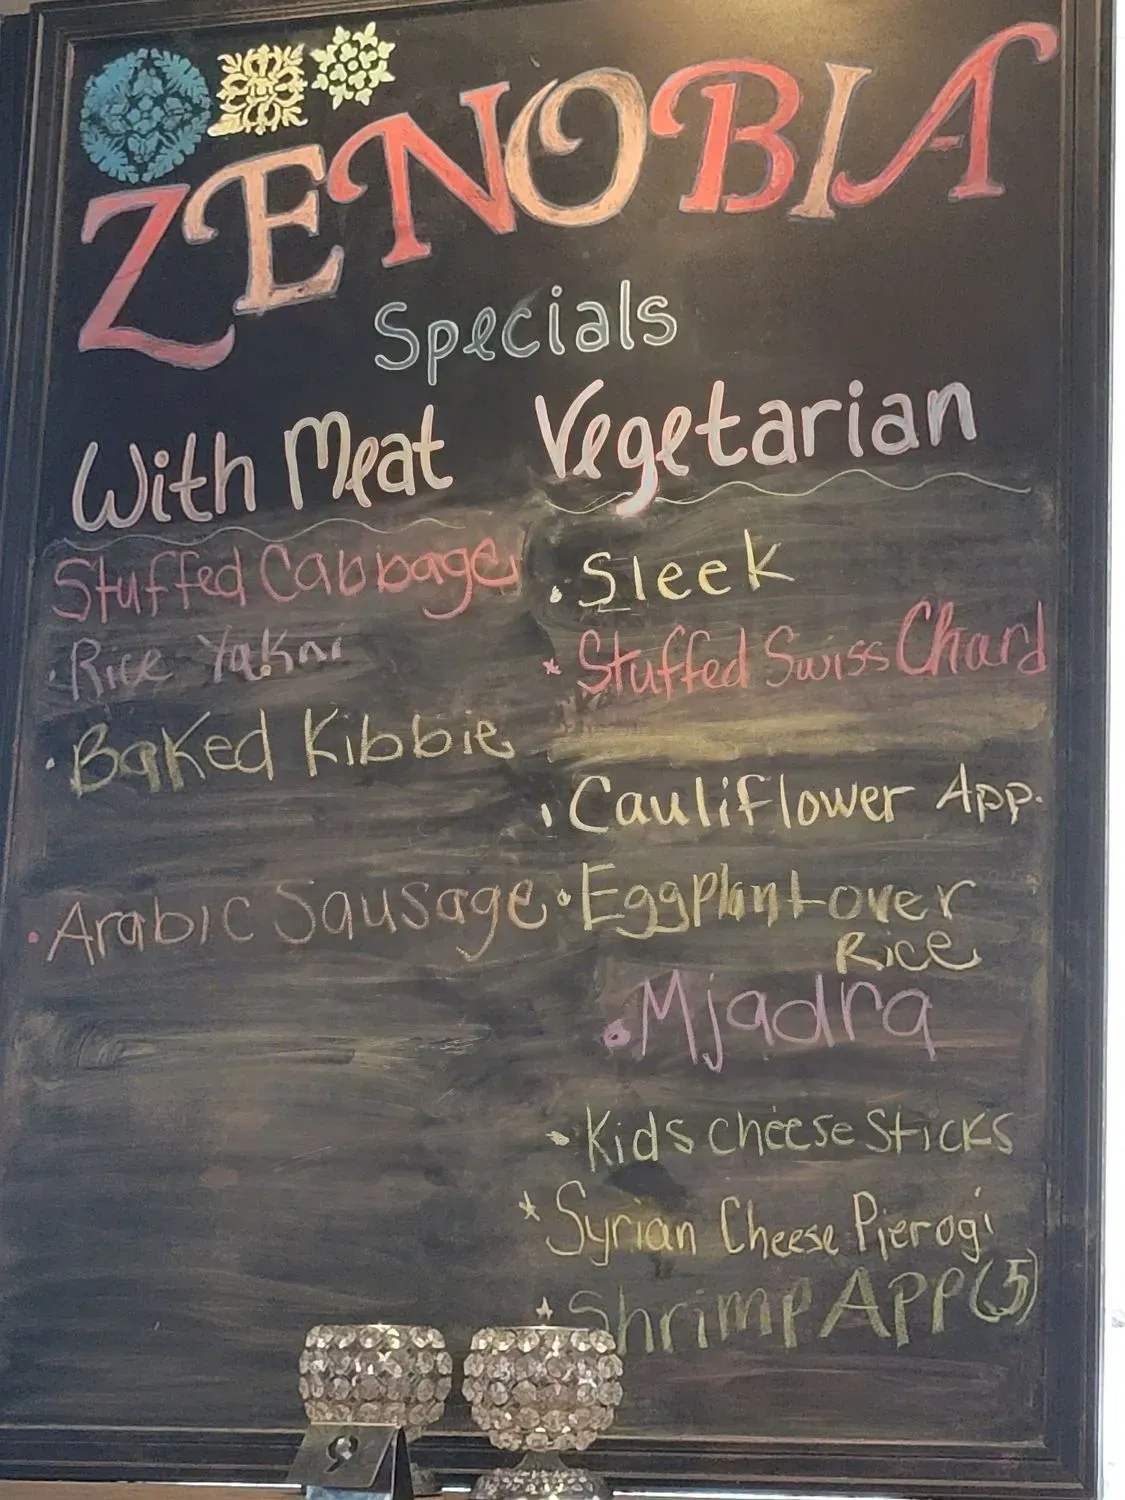 ZENOBIA
Specials
With Meat
Stuffed Cabbage
Rice Yakni
Baked Kibbie
Arabic Sausage
Vegetarian
Sleek
Stuffed Swiss Chard
Cauliflower App.
Eggplant over
Rice
Mjadra
Kids cheese sticks
Syrian Cheese Pierogi
Shrimp App (5)
9